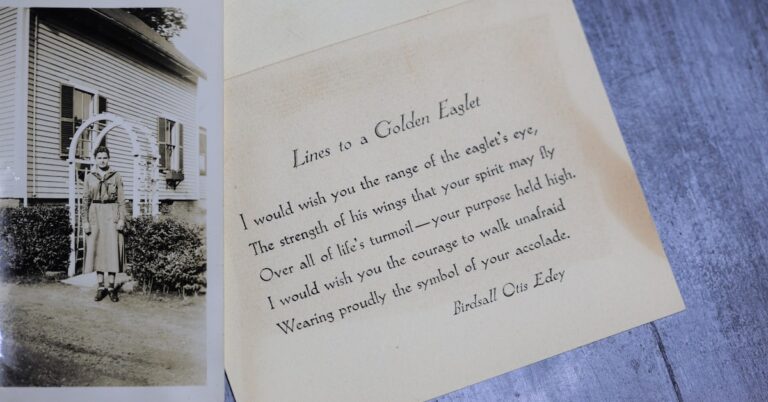 Lines to a Golden Eaglet
I would wish you the range of the eaglet's eye,
The strength of his wings that your spirit may fly
Over all of life's turmoil—your purpose held high.
I would wish you the courage to walk unafraid
Wearing proudly the symbol of your accolade.
Birdsall Otis Edey